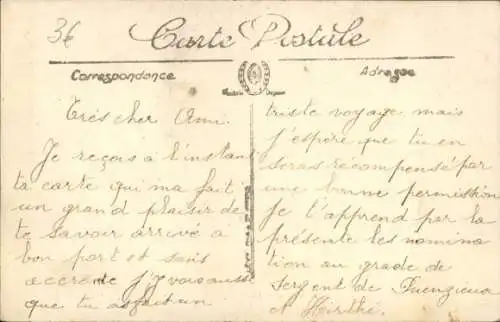 36
Carte Postale
Correspondance
Adresse
Très cher Ami.
Je reçois à l'instant
ta carte qui ma fait
un grand plaisir de
te savoir arrivé à
bon port et sans
accroc j'y vois aussi
que tu as fait un
triste voyage mais
j'espère que tu en
seras récompensé par
une bonne permission
je t'apprend par la
présente les nomina
tion au grade de
Sergent de
et